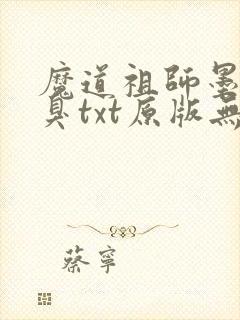 魔道祖師墨
臭txt原版無
蔡寧